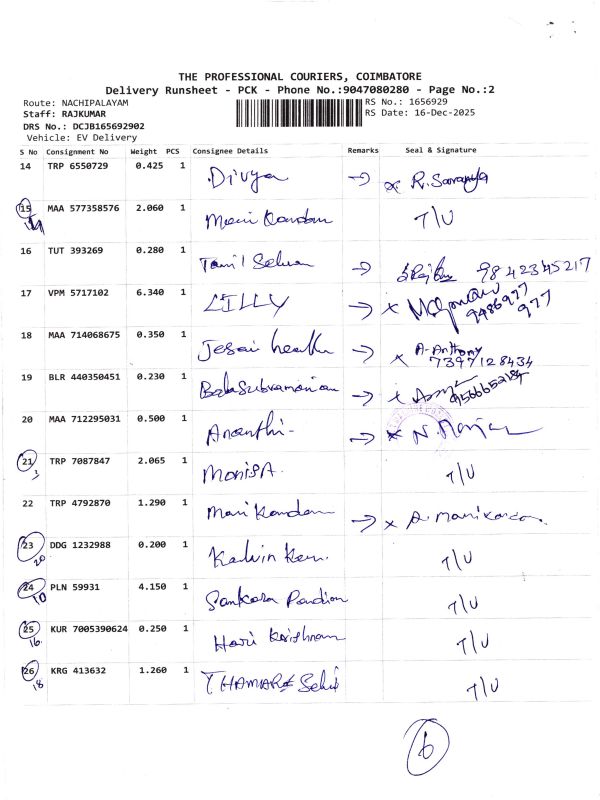 THE PROFESSIONAL COURIERS, COIMBATORE
Delivery Runsheet - PCK - Phone No.:9047080280 - Page No.:2
Route: NACHIPALAYAM RS No.: 1656929
Staff: RAJKUMAR RS Date: 16-Dec-2025
DRS No.: DCJB165692902
Vehicle: EV Delivery
S No Consignment No Weight PCS Consignee Details Remarks Seal & Signature
14 TRP 6550729 0.425 1 Divya → x R. Saranya
15 MAA 577358576 2.060 1 Mani Kandan T/U
16 TUT 393269 0.280 1 Tamil Selvan → 9842345217
17 VPM 5717102 6.340 1 LILLY → x 9486977977
18 MAA 714068675 0.350 1 Jesai x A-Anthony
7397128434
19 BLR 440350451 0.230 1 Balasubramanian → x
20 MAA 712295031 0.500 1 Ananthi - → x
21 TRP 7087847 2.065 1 MONISA. T/U
3
22 TRP 4792870 1.290 1 Mani Kandan → x
23 DDG 1232988 0.200 1 T/U
20
24 PLN 59931 4.150 1 Sankara Pandian T/U
10
25 KUR 7005390624 0.250 1 Hari Krishnan T/U
16
26 KRG 413632 1.260 1 T/U
18
6